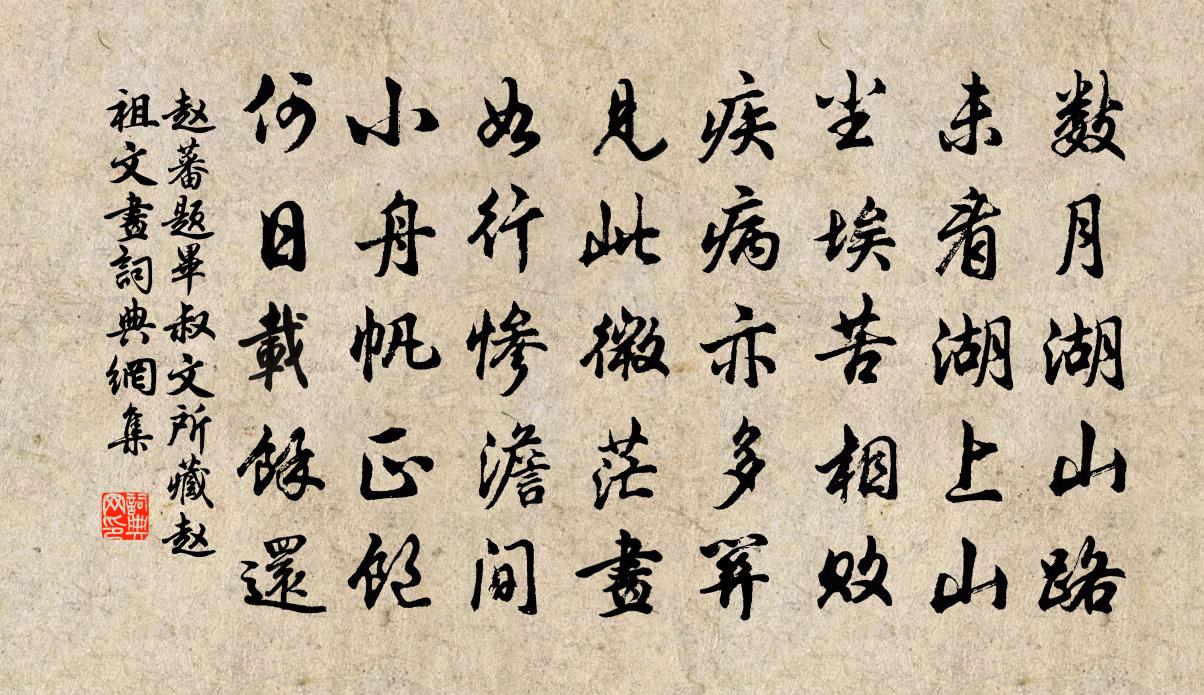 數月湖山路
未看湖上山
尘埃苦相敗
疾病亦多關
見此微茫畫
如行慘澹間
小舟帆正飽
何日載餘還
赵蕃題畢叔文所藏赵
祖文畫詞典網集
詞典
网印